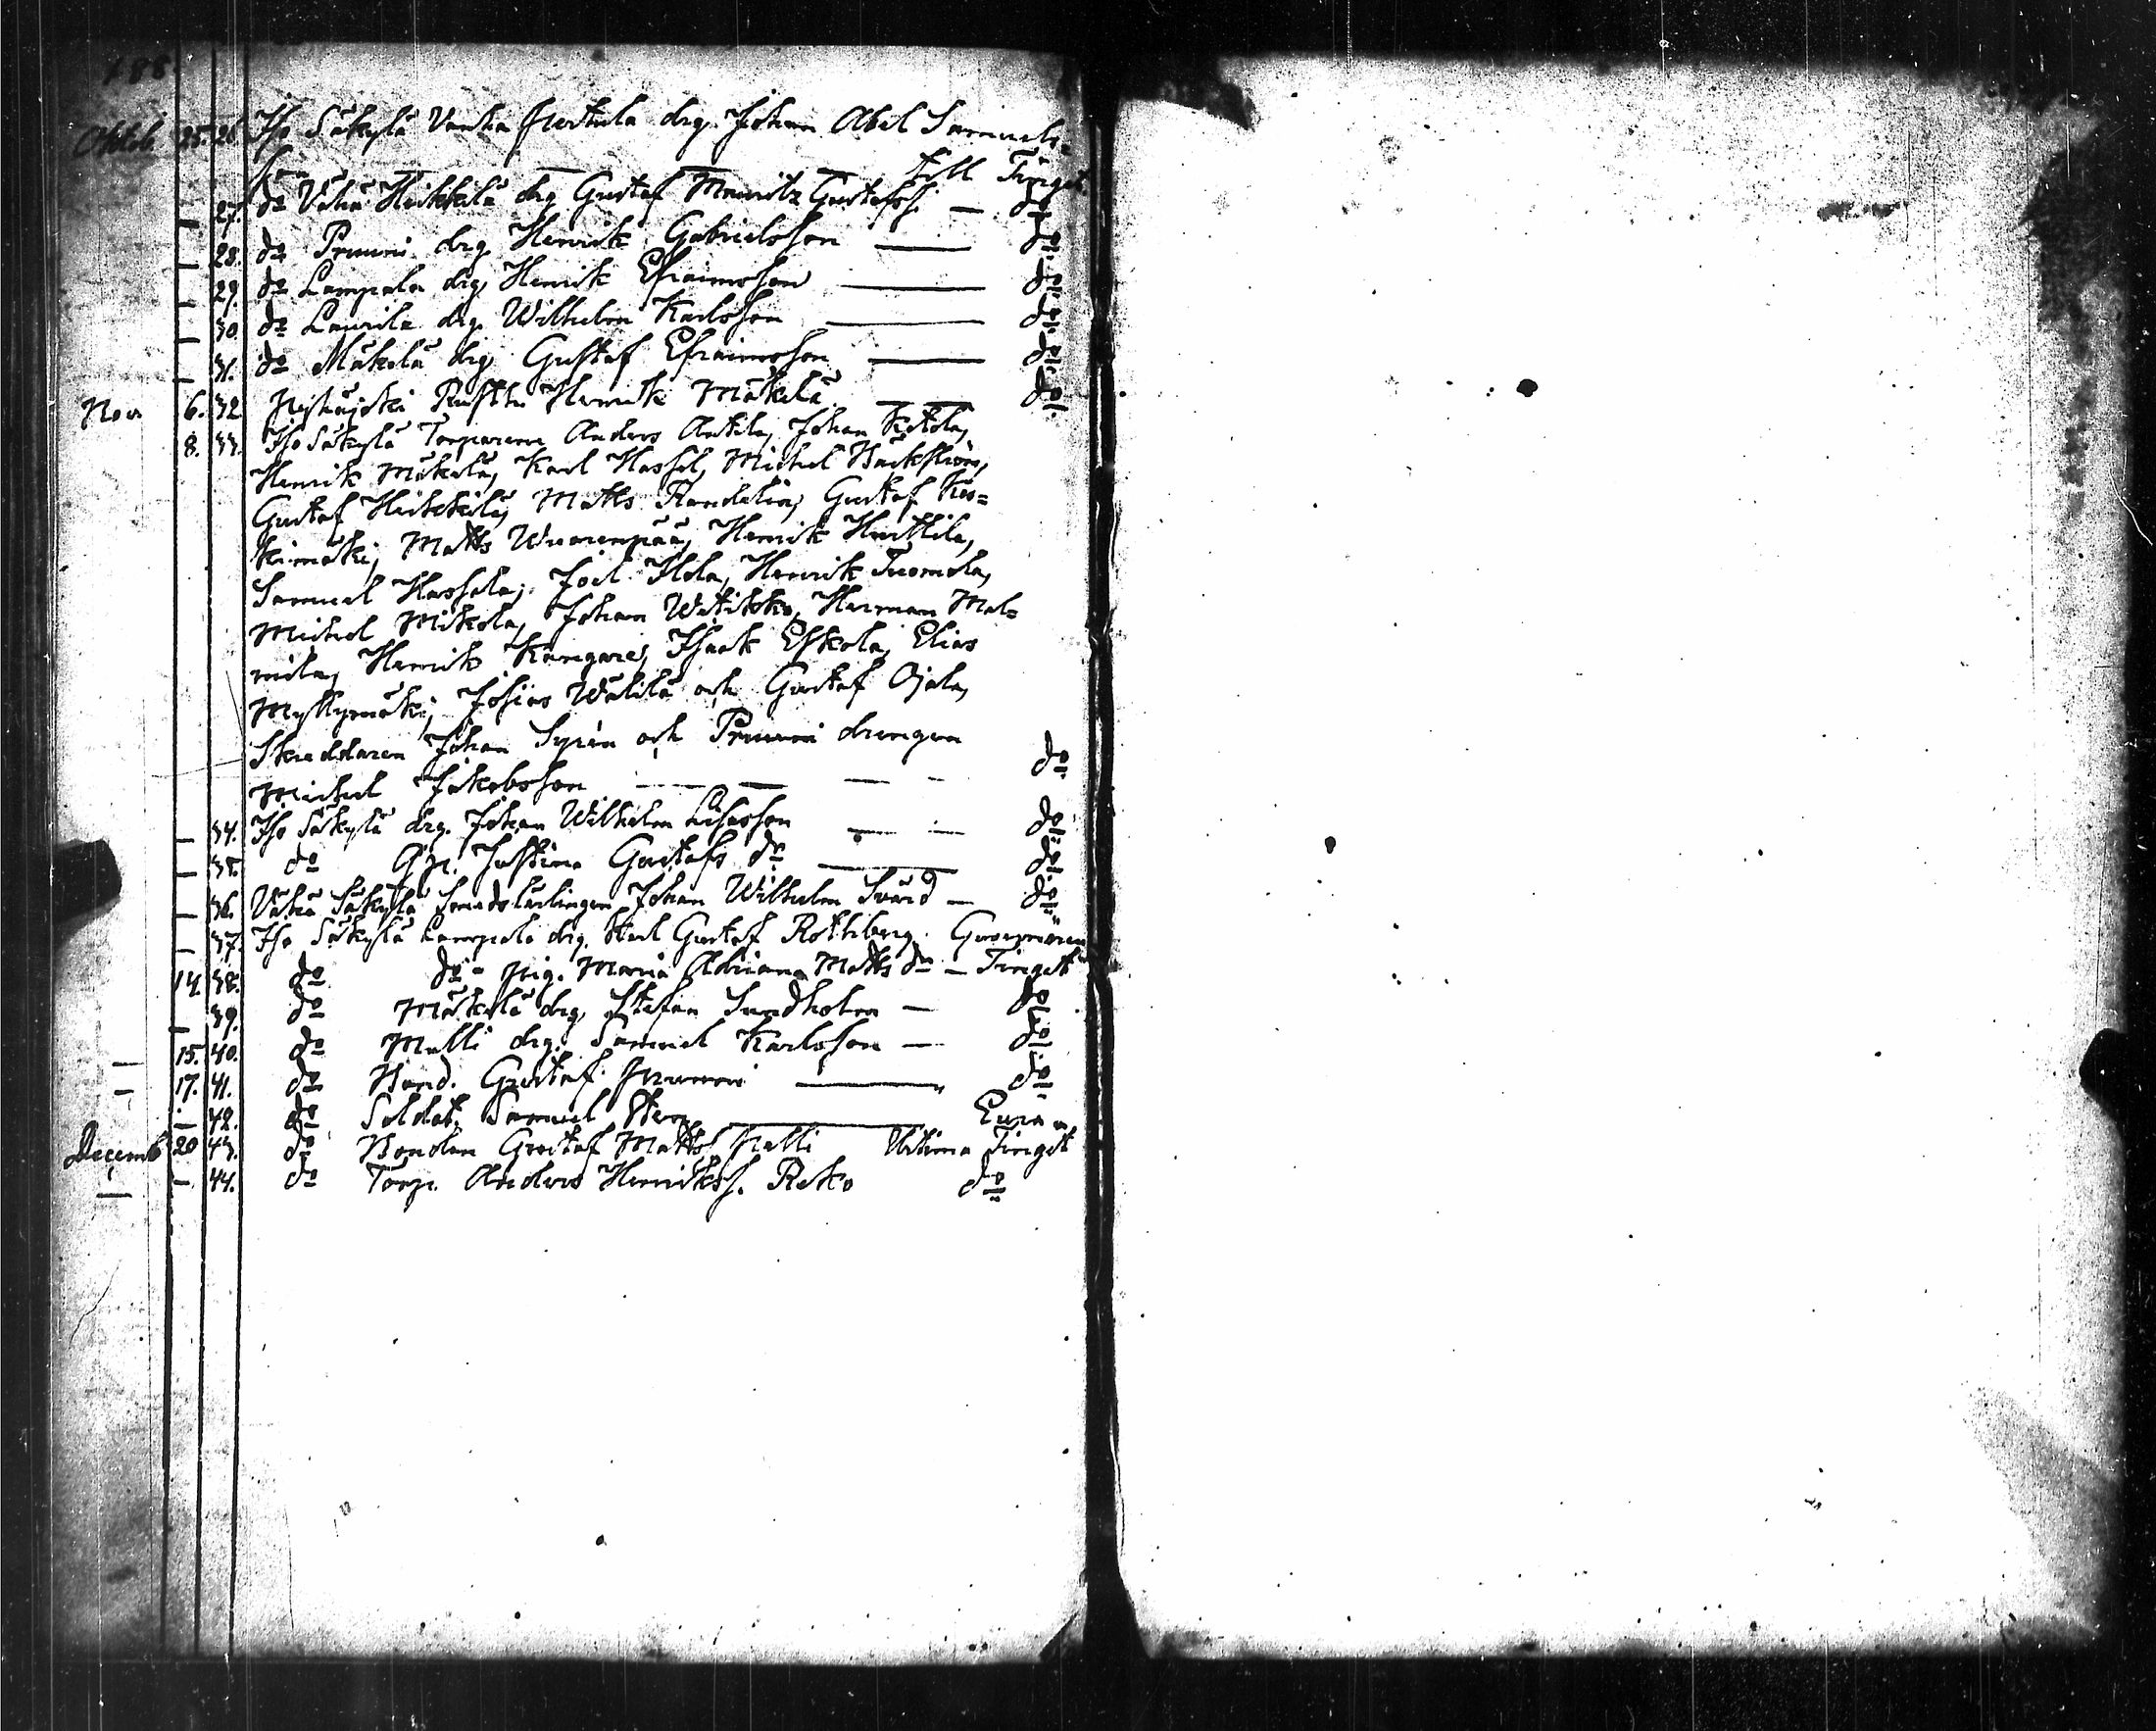 188
Oktob. 25. 26. Iso Säkylä Vanha Perttula drg. Johan Abel Samuels=
S. — — — till Tinget
— 27. do Vähä Heikkilä drg Gustaf Mauritz Gustafss. — do
— 28. do Pruuni drg. Henrik Gabrielsson — do
— 29. do Lampala drg. Henrik Efraimsson — do
— 30 do Laurila drg. Wilhelm Karlsson — do
— 31. do Mäkelä drg Gustaf Efraimsson — do
Nov 6. 32 Pyhäjoki Rusth. Henrik Mäkelä — do
8. 33. Iso Säkylä Torparene Anders Antila, Johan Ketola,
Henrik Mäkelä, Karl Hassel, Michel Bäckström,
Gustaf Heikkilä, Matts Randelin, Gustaf Kos=
kimäki, Matts Wuorenpää, Henrik Hurttila,
Samuel Hassala, Joel Ilola, Henrik Tuomola,
Michel Mikola, Johan Watikko, Herman Mal=
mila, Henrik Kangare, Isaak Eskola, Elias
Myllymäki, Josias Wälilä och Gustaf Ojala,
Skraddaren Johan Syrén och Pruuni drengen
Michel Jakobsson — — — do
— 34. Iso Säkylä drg. Johan Wilhelm Esasson — do
— 35. do Justina Gustafs dr — do
— 36. Vähä Säkylä smedslärlingen Johan Wilhelm Svärd — do
— 37. Iso Säkylä Lampala drg. Karl Gustaf Rothberg.
14. 38. do do pig. Maria Adriana Matts dr — Tinget
— 39. do Mäkelä drg. Stefan Sundholm — do
— 15. 40. do Malli drg. Samuel Karlsson — do
— 17. 41. do Bond. Gustaf Pruuni — do
— 42. do Soldat. Samuel Sten — Eura
Decemb 20 43. do Bonden Gustaf Matts. Malli Ultima Tinget
— — 44. do Torp. Anders Henrikss. Reko do